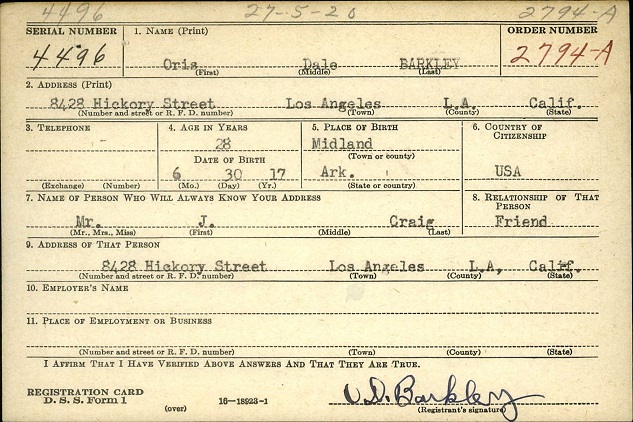 4496 27-5-20 2794-A
SERIAL NUMBER 1. NAME (Print) ORDER NUMBER
4496 Oris Dale BARKLEY 2794-A
(First) (Middle) (Last)
2. ADDRESS (Print)
8428 Hickory Street Los Angeles L.A. Calif.
(Number and street or R. F. D. number) (Town) (County) (State)
3. TELEPHONE 4. AGE IN YEARS 5. PLACE OF BIRTH 6. COUNTRY OF CITIZENSHIP
- 28 Midland
DATE OF BIRTH (Town or county)
6 30 17 Ark. USA
(Exchange) (Number) (Mo.) (Day) (Yr.) (State or country)
7. NAME OF PERSON WHO WILL ALWAYS KNOW YOUR ADDRESS 8. RELATIONSHIP OF THAT PERSON
Mr. J. Craig Friend
(Mr., Mrs., Miss) (First) (Middle) (Last)
9. ADDRESS OF THAT PERSON
8428 Hickory Street Los Angeles L.A, Calif.
(Number and street or R. F. D. number) (Town) (County) (State)
10. EMPLOYER'S NAME
11. PLACE OF EMPLOYMENT OR BUSINESS
(Number and street or R. F. D. number) (Town) (County) (State)
I AFFIRM THAT I HAVE VERIFIED ABOVE ANSWERS AND THAT THEY ARE TRUE.
REGISTRATION CARD
D. S. S. Form 1 (over) 16—18923-1 O.D. Barkley
(Registrant's signature)